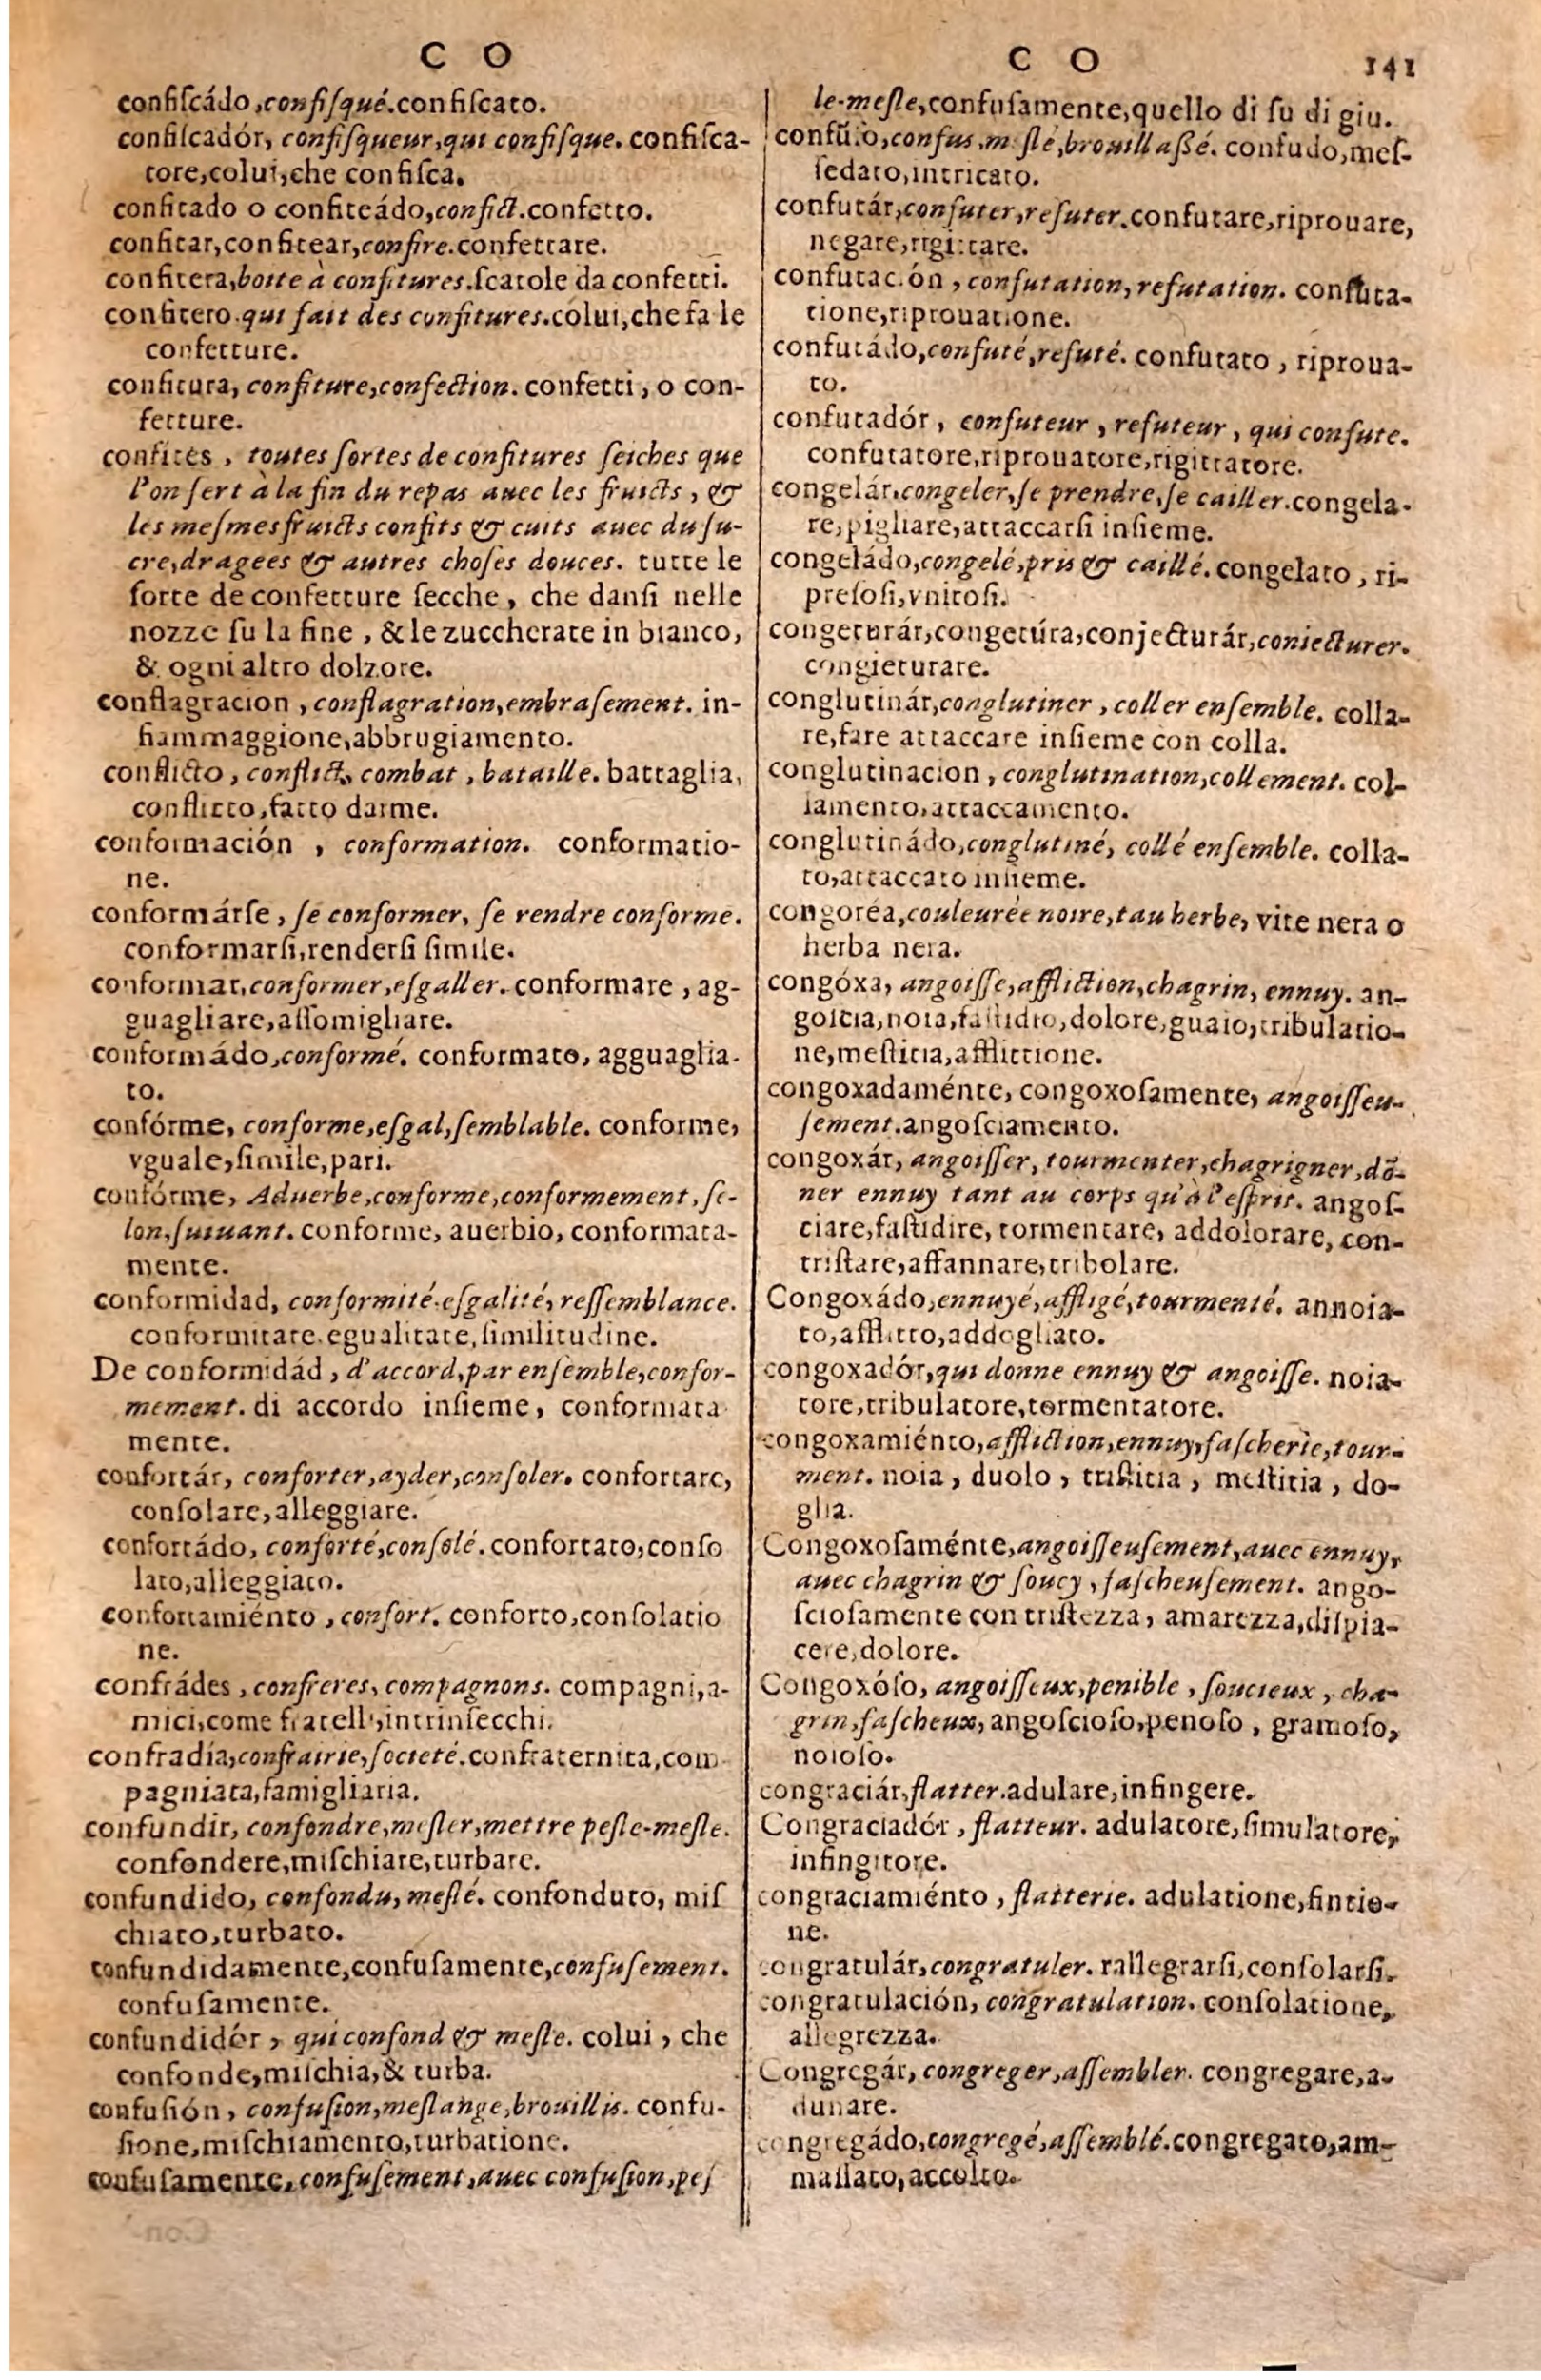 C O
confiſcádo, confiſqué. confiſcato.
confiſcadór, confiſqueur, qui confiſque. confiſca-
tore, colui, che confiſca.
confitado o confiteádo, confict. confetto.
confitar, confitear, confire. confettare.
confitera, boite à confitures. ſcatole da confetti.
confitero. qui fait des confitures. colui, che fa le
confetture.
confitura, confiture, confection. confetti, o con-
fetture.
confites, toutes ſortes de confitures ſeiches que
l'on ſert à la fin du repas auec les fruicts, &
les meſmes fruicts confits & cuits auec du ſu-
cre, dragees & autres choſes douces. tutte le
ſorte de confetture ſecche, che danſi nelle
nozze ſu la fine, & le zuccherate in bianco,
& ogni altro dolzore.
conflagracion, conflagration, embraſement. in-
fiammaggione, abbrugiamento.
conflicto, conflict, combat, bataille. battaglia,
conflitto, fatto darme.
conformación, conformation. conformatio-
ne.
conformárſe, ſe conformer, ſe rendre conforme.
conformarſi, renderſi ſimile.
conformar, conformer, eſgaller. conformare, ag-
guagliare, aſſomigliare.
conformádo, conformé. conformato, agguaglia-
to.
confórme, conforme, eſgal, ſemblable. conforme,
vguale, ſimile, pari.
confórme, Aduerbe, conforme, conformement, ſe-
lon, ſuiuant. conforme, auerbio, conformata-
mente.
conformidad, conformité. eſgalité, reſſemblance.
conformitate. egualitate, ſimilitudine.
De conformidád, d'accord, par enſemble, confor-
mement. di accordo inſieme, conformata
mente.
confortár, conforter, ayder, conſoler. confortare,
conſolare, alleggiare.
confortádo, conforté, conſolé. confortato, conſo
lato, alleggiato.
confortamiénto, confort. conforto, conſolatio
ne.
confrádes, confreres, compagnons. compagni, a-
mici, come fratelli, intrinſecchi.
confradía, confrairie, ſocieté. confraternita, com
pagniata, famigliaria.
confundir, confondre, meſler, mettre peſle-meſle.
confondere, miſchiare, turbare.
confundido, confondu, meſlé. confonduto, miſ
chiato, turbato.
confundidamente, confuſamente, confuſement.
confuſamente.
confundidór, qui confond & meſle. colui, che
confonde, miſchia, & turba.
confuſión, confuſion, meſlange, brouillis. confu-
ſione, miſchiamento, turbatione.
confuſamente, confuſement, auec confuſion, peſ
C O 141
le-meſle, confuſamente, quello di ſu di giu.
confúſo, confus, meſlé, brouillaßé. confudo, meſ-
ſedato, intricato.
confutár, confuter, refuter. confutare, riprouare,
negare, rigittare.
confutación, confutation, refutation. confuta-
tione, riprouatione.
confutádo, confuté, refuté. confutato, riproua-
to.
confutadór, confuteur, refuteur, qui confute.
confutatore, riprouatore, rigittatore.
congelár, congeler, ſe prendre, ſe cailler. congela-
re, pigliare, attaccarſi inſieme.
congeládo, congelé, pris & caillé. congelato, ri-
preſoſi, vnitoſi.
congeturár, congetúra, conjecturár, coniecturer.
congieturare.
conglutinár, conglutiner, coller enſemble. colla-
re, fare attaccare inſieme con colla.
conglutinacion, conglutination, collement. col-
lamento, attaccamento.
conglutinádo, conglutiné, collé enſemble. colla-
to, attaccato inſieme.
congoréa, couleurée noire, tau herbe, vite nera o
herba nera.
congóxa, angoiſſe, affliction, chagrin, ennuy. an-
goſcia, noia, faſtidio, dolore, guaio, tribulatio-
ne, meſtitia, afflittione.
congoxadaménte, congoxoſamente, angoiſſeu-
ſement. angoſciamento.
congoxár, angoiſſer, tourmenter, chagrigner, dõ-
ner ennuy tant au corps qu'à l'eſprit. angoſ-
ciare, faſtidire, tormentare, addolorare, con-
triſtare, affannare, tribolare.
Congoxádo, ennuyé, affligé, tourmenté. annoia-
to, afflitto, addogliato.
congoxadór, qui donne ennuy & angoiſſe. noia-
tore, tribulatore, tormentatore.
congoxamiénto, affliction, ennuy, faſcherie, tour-
ment. noia, duolo, triſtitia, meſtitia, do-
glia.
Congoxoſaménte, angoiſſeuſement, auec ennuy,
auec chagrin & ſoucy, faſcheuſement. ango-
ſcioſamente con triſtezza, amarezza, diſpia-
cere, dolore.
Congoxóſo, angoiſſeux, penible, ſoucieux, cha-
grin, faſcheux, angoſcioſo, penoſo, gramoſo,
noioſo.
congraciár, flatter. adulare, infingere.
Congraciadór, flatteur. adulatore, ſimulatore,
infingitore.
congraciamiénto, flatterie. adulatione, fintio-
ne.
congratulár, congratuler. rallegrarſi, conſolarſi.
congratulación, congratulation. conſolatione,
allegrezza.
Congregár, congreger, aſſembler. congregare, a-
dunare.
congregádo, congregé, aſſemblé. congregato, am-
maſſato, accolto.